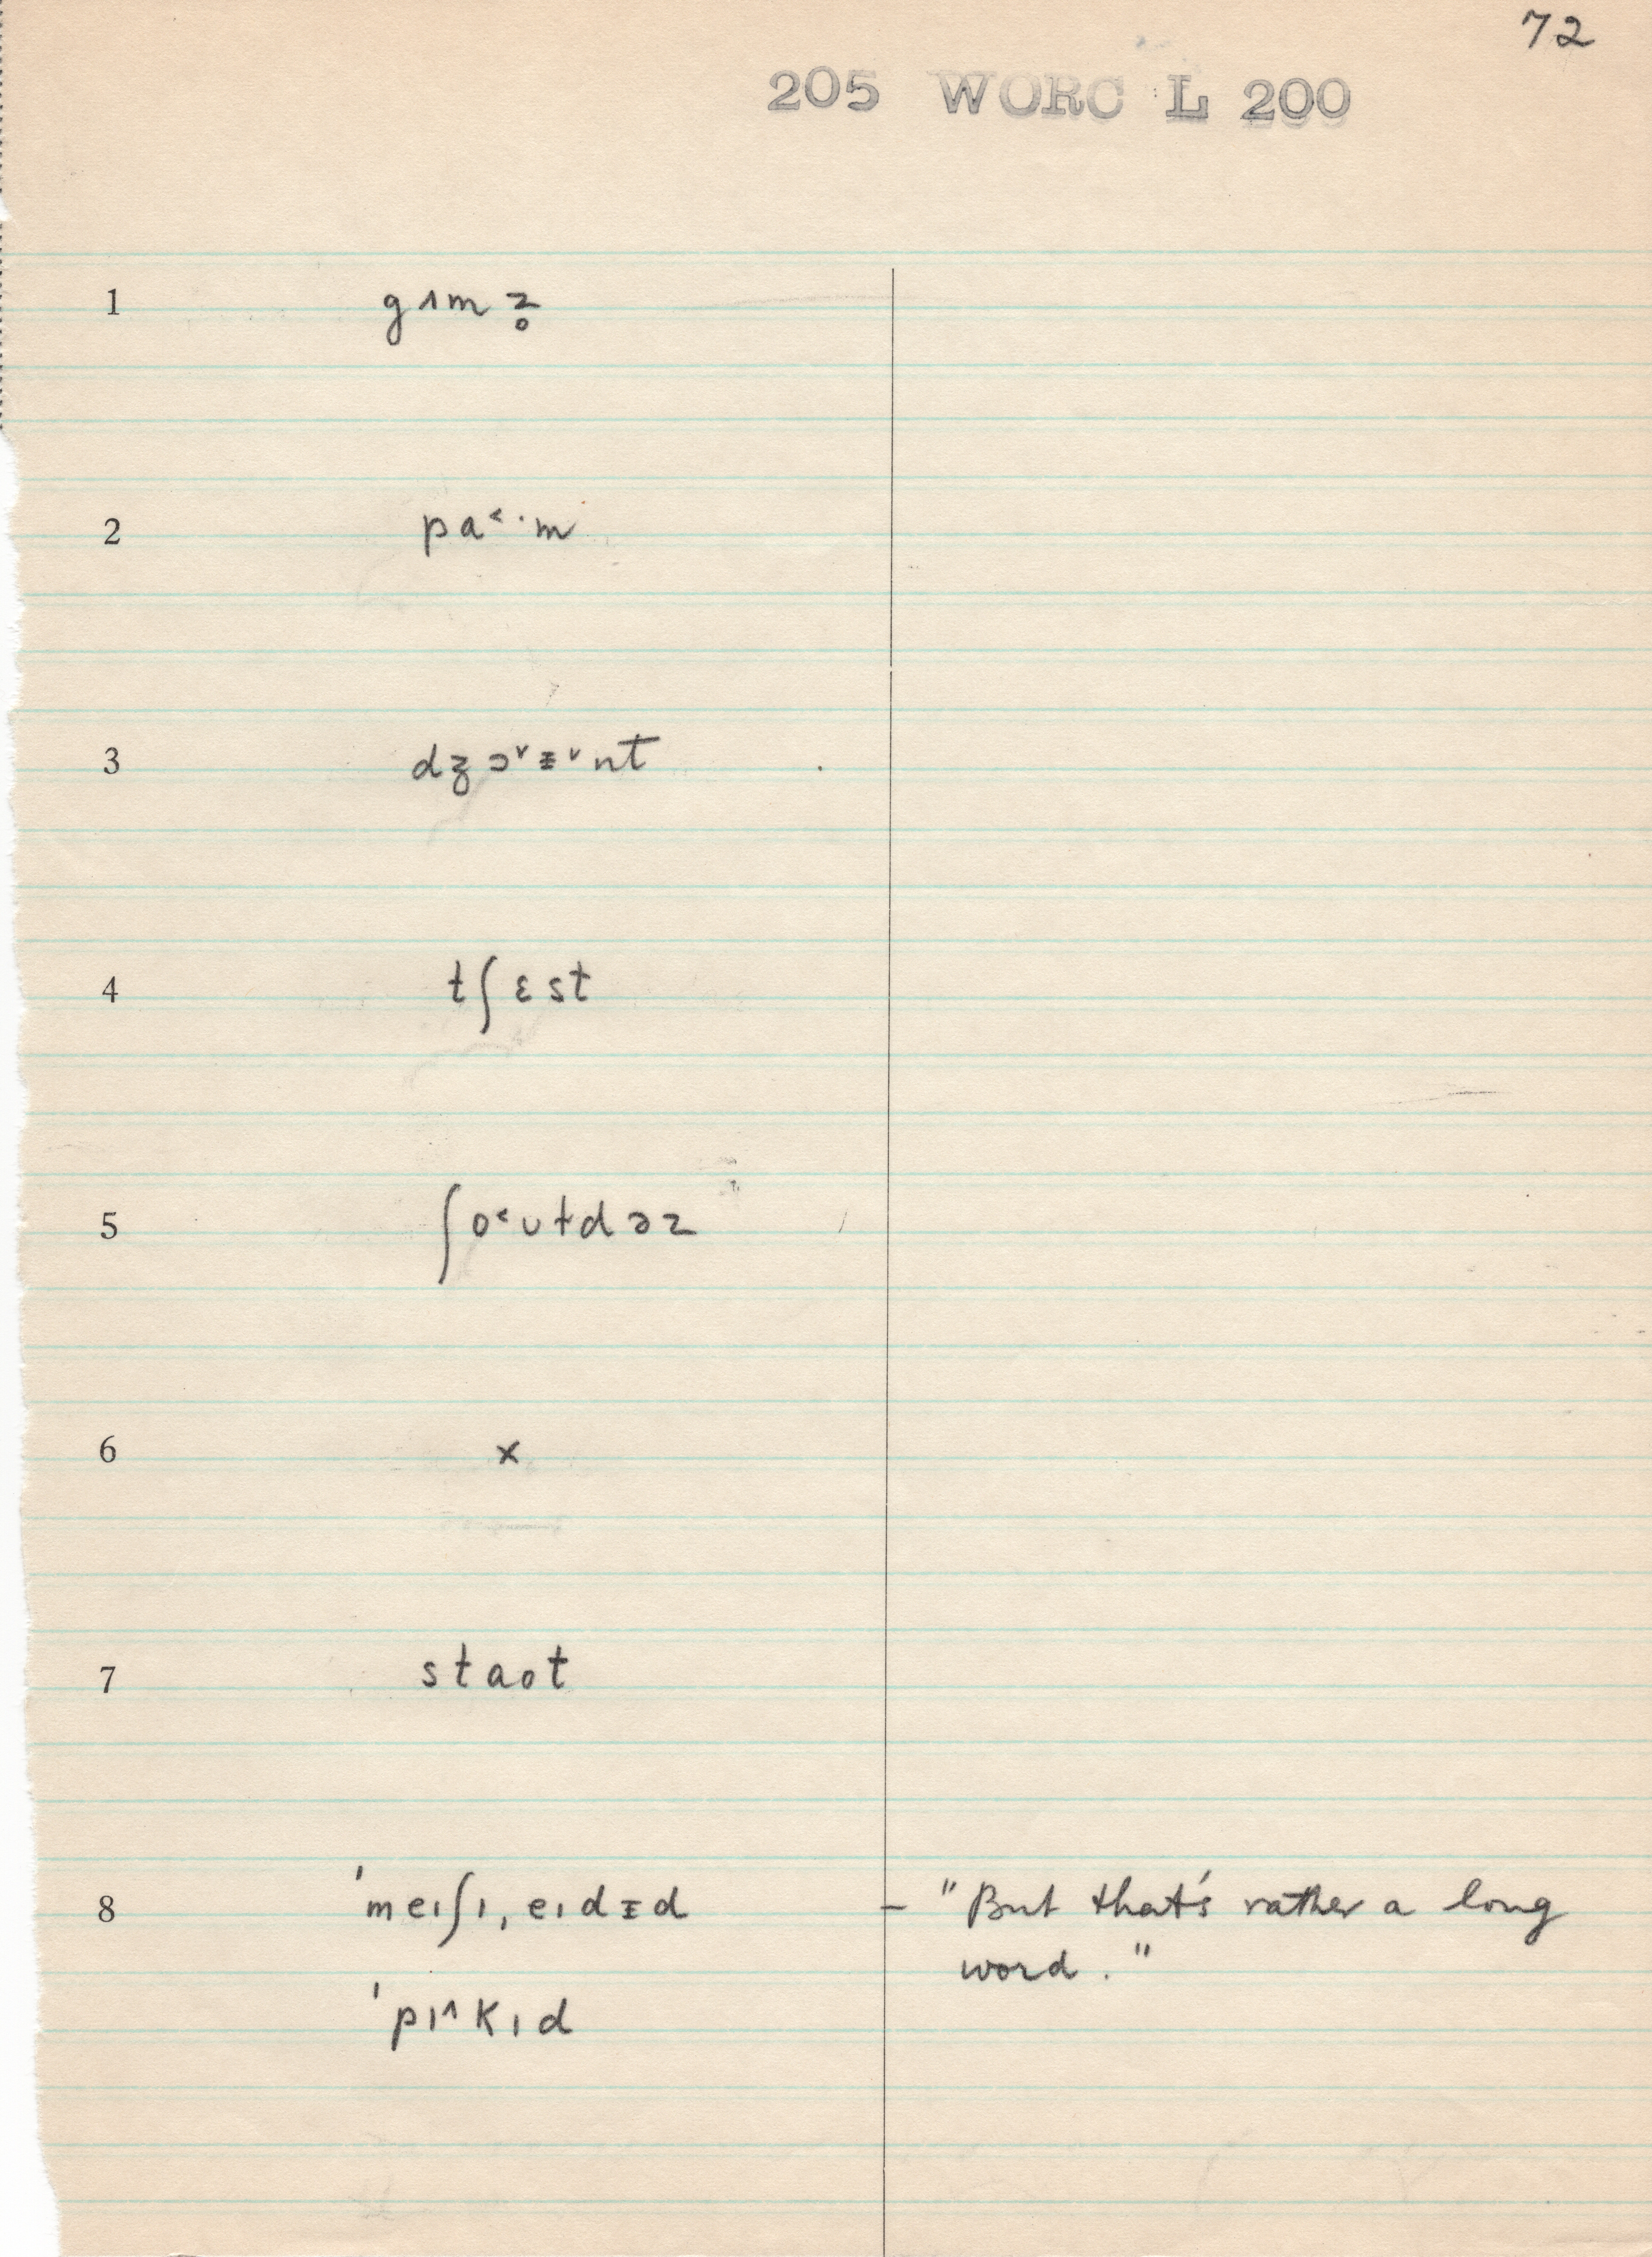 72
205 WORC L 200
1 gʌmz̥
2 pa˂·m
3 dʒɔ˅ᵻ˅nt
4 tʃɛst
5 ʃo˂ʊɫdəz
6 x
7 staot
8 ˈmeɪʃɪˌeɪdᵻd – "But that's rather a long
word."
ˈpɪ˄kɪd